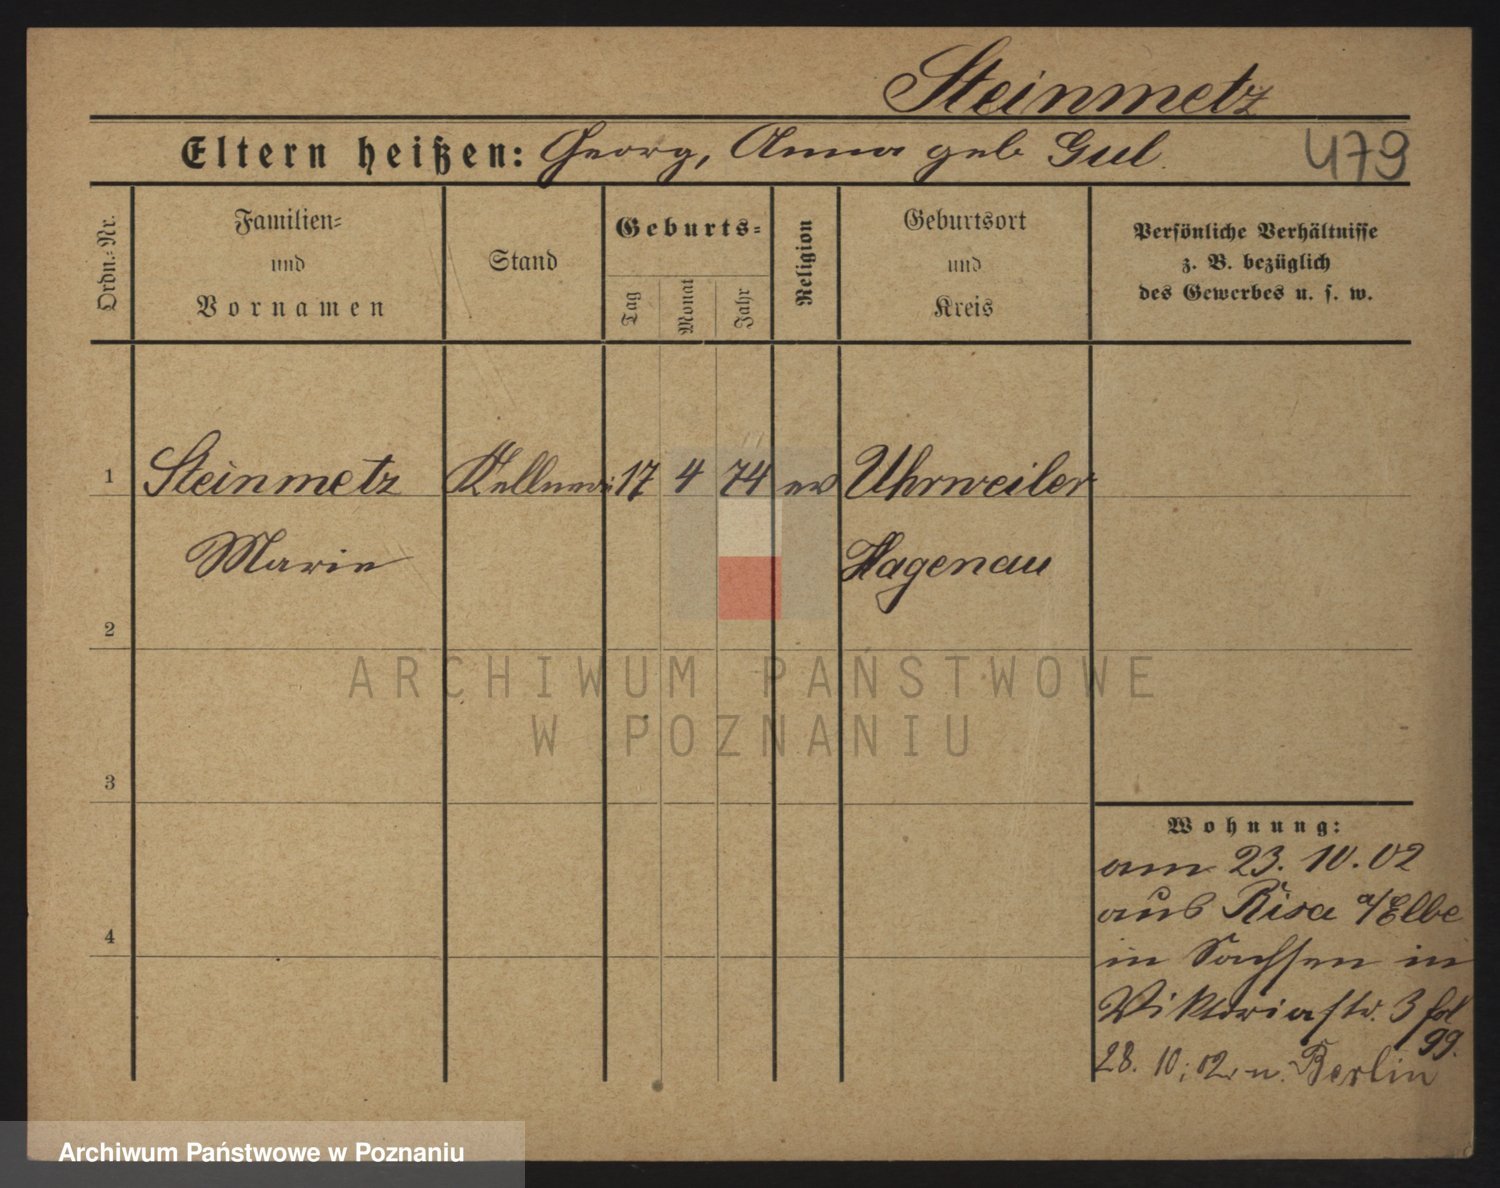 Steinmetz
Eltern heißen: Georg, Anna geb Gul.
479
Ordn.-Nr.
Familien-
und
Vornamen
Stand
Geburts-
Tag
Monat
Jahr
Religion
Geburtsort
und
Kreis
Persönliche Verhältnisse
z. B. bezüglich
des Gewerbes u. s. w.
1 Steinmetz Kellneri 17 4 74 ev Uhrweiler
Marie Hagenau
2
ARCHIWUM PAŃSTWOWE
W POZNANIU
3
Wohnung:
am 23. 10. 02
aus Risa a/Elbe
4
in Sachsen in
Viktoriastr. 3 fol
99.
28. 10. 02. n. Berlin
Archiwum Państwowe w Poznaniu